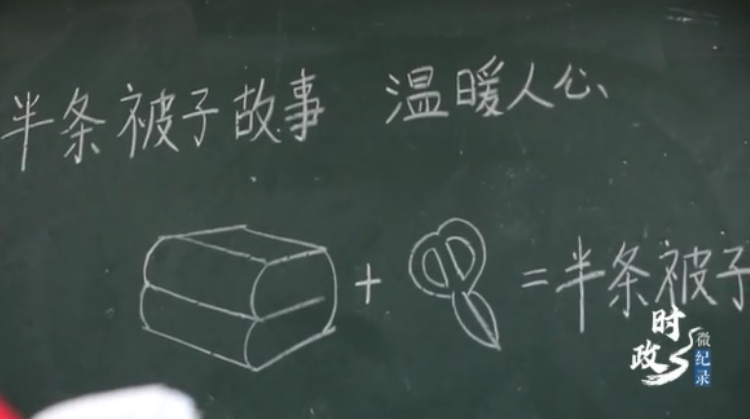 半条被子故事 温暖人心
+ =半条被子
时政
微纪录